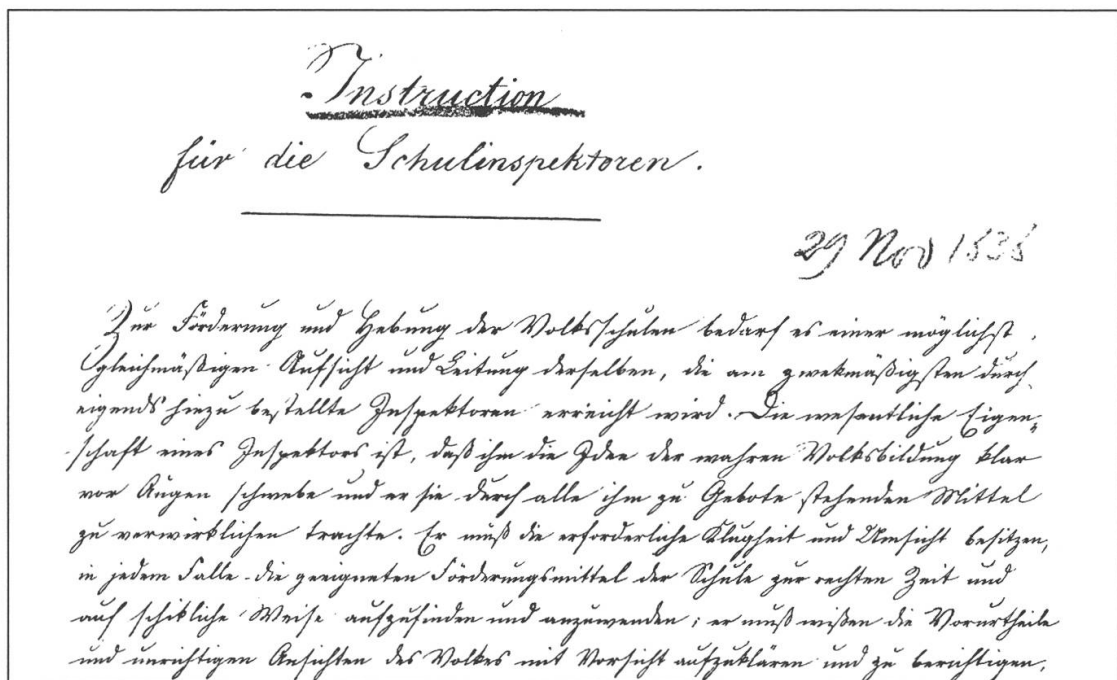 Instruction
für die Schulinspektoren.
29 Nov 1838
Zur Förderung und Hebung der Volksschulen bedarf es einer möglichst
gleichmäßigen Aufsicht und Leitung derselben, die am zwekmäßigsten durch
eigends hinzu bestellte Inspektoren erreicht wird. Die wesentliche Eigen=
schaft eines Inspektors ist, daß ihm die Idee der wahren Volksbildung klar
vor Augen schwebe und er sie durch alle ihm zu Gebote stehenden Mittel
zu verwirklichen trachte. Er muß die erforderliche Klugheit und Umsicht besitzen,
in jedem Falle die geeigneten Förderungsmittel der Schule zur rechten Zeit und
auf schikliche Weise aufzufinden und anzuwenden; er muß wißen die Vorurtheile
und unrichtigen Ansichten des Volkes mit Vorsicht aufzuklären und zu berichtigen,